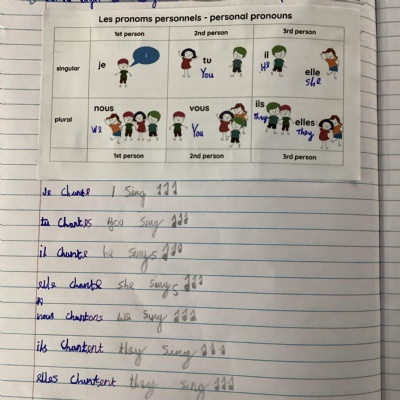 Les pronoms personnels - personal pronouns
1st person 2nd person 3rd person
singular je tu You il He elle She
plural nous We vous You ils they elles They
1st person 2nd person 3rd person
Je chante I sing
tu chantes you sing
il chante he sings
elle chante she sings
nous chantons we sing
ils chantent they sing
elles chantent they sing